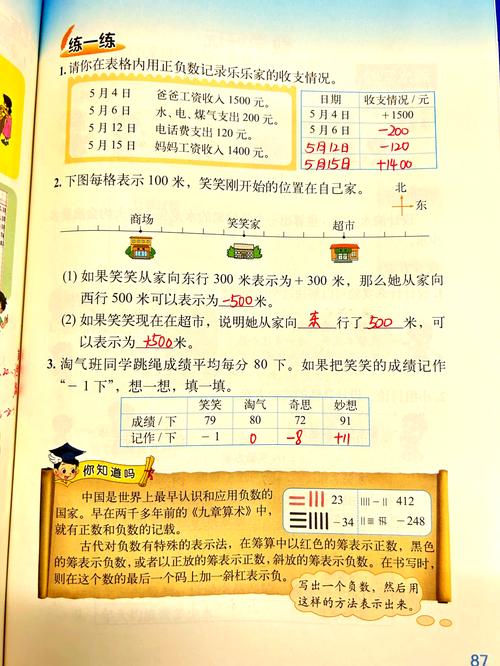 练一练
1. 请你在表格内用正负数记录乐乐家的收支情况。
5月4日 爸爸工资收入1500元。
5月6日 水、电、煤气支出200元。
5月12日 电话费支出120元。
5月15日 妈妈工资收入1400元。
日期 收支情况/元
5月4日 +1500
5月6日 -200
5月12日 -120
5月15日 +1400
2. 下图每格表示100米，笑笑刚开始的位置在自己家。
北
东
商场 笑笑家 超市
(1) 如果笑笑从家向东行300米表示为+300米，那么她从家向
西行500米可以表示为-500米。
(2) 如果笑笑现在在超市，说明她从家向 东 行了 500 米，可
以表示为+500米。
3. 淘气班同学跳绳成绩平均每分80下。如果把笑笑的成绩记作
“-1下”，想一想，填一填。
笑笑 淘气 奇思 妙想
成绩/下 79 80 72 91
记作/下 -1 0 -8 +11
你知道吗
中国是世界上最早认识和应用负数的
国家。早在两千多年前的《九章算术》中，
就有正数和负数的记载。
古代对负数有特殊的表示法，在筹算中以红色的筹表示正数，黑色
的筹表示负数，或者以正放的筹表示正数，斜放的筹表示负数。在书写时，
则在这个数的最后一个码上加一斜杠表示负。
23 412
-34 -248
写出一个负数，然后用
这样的方法表示出来。
87